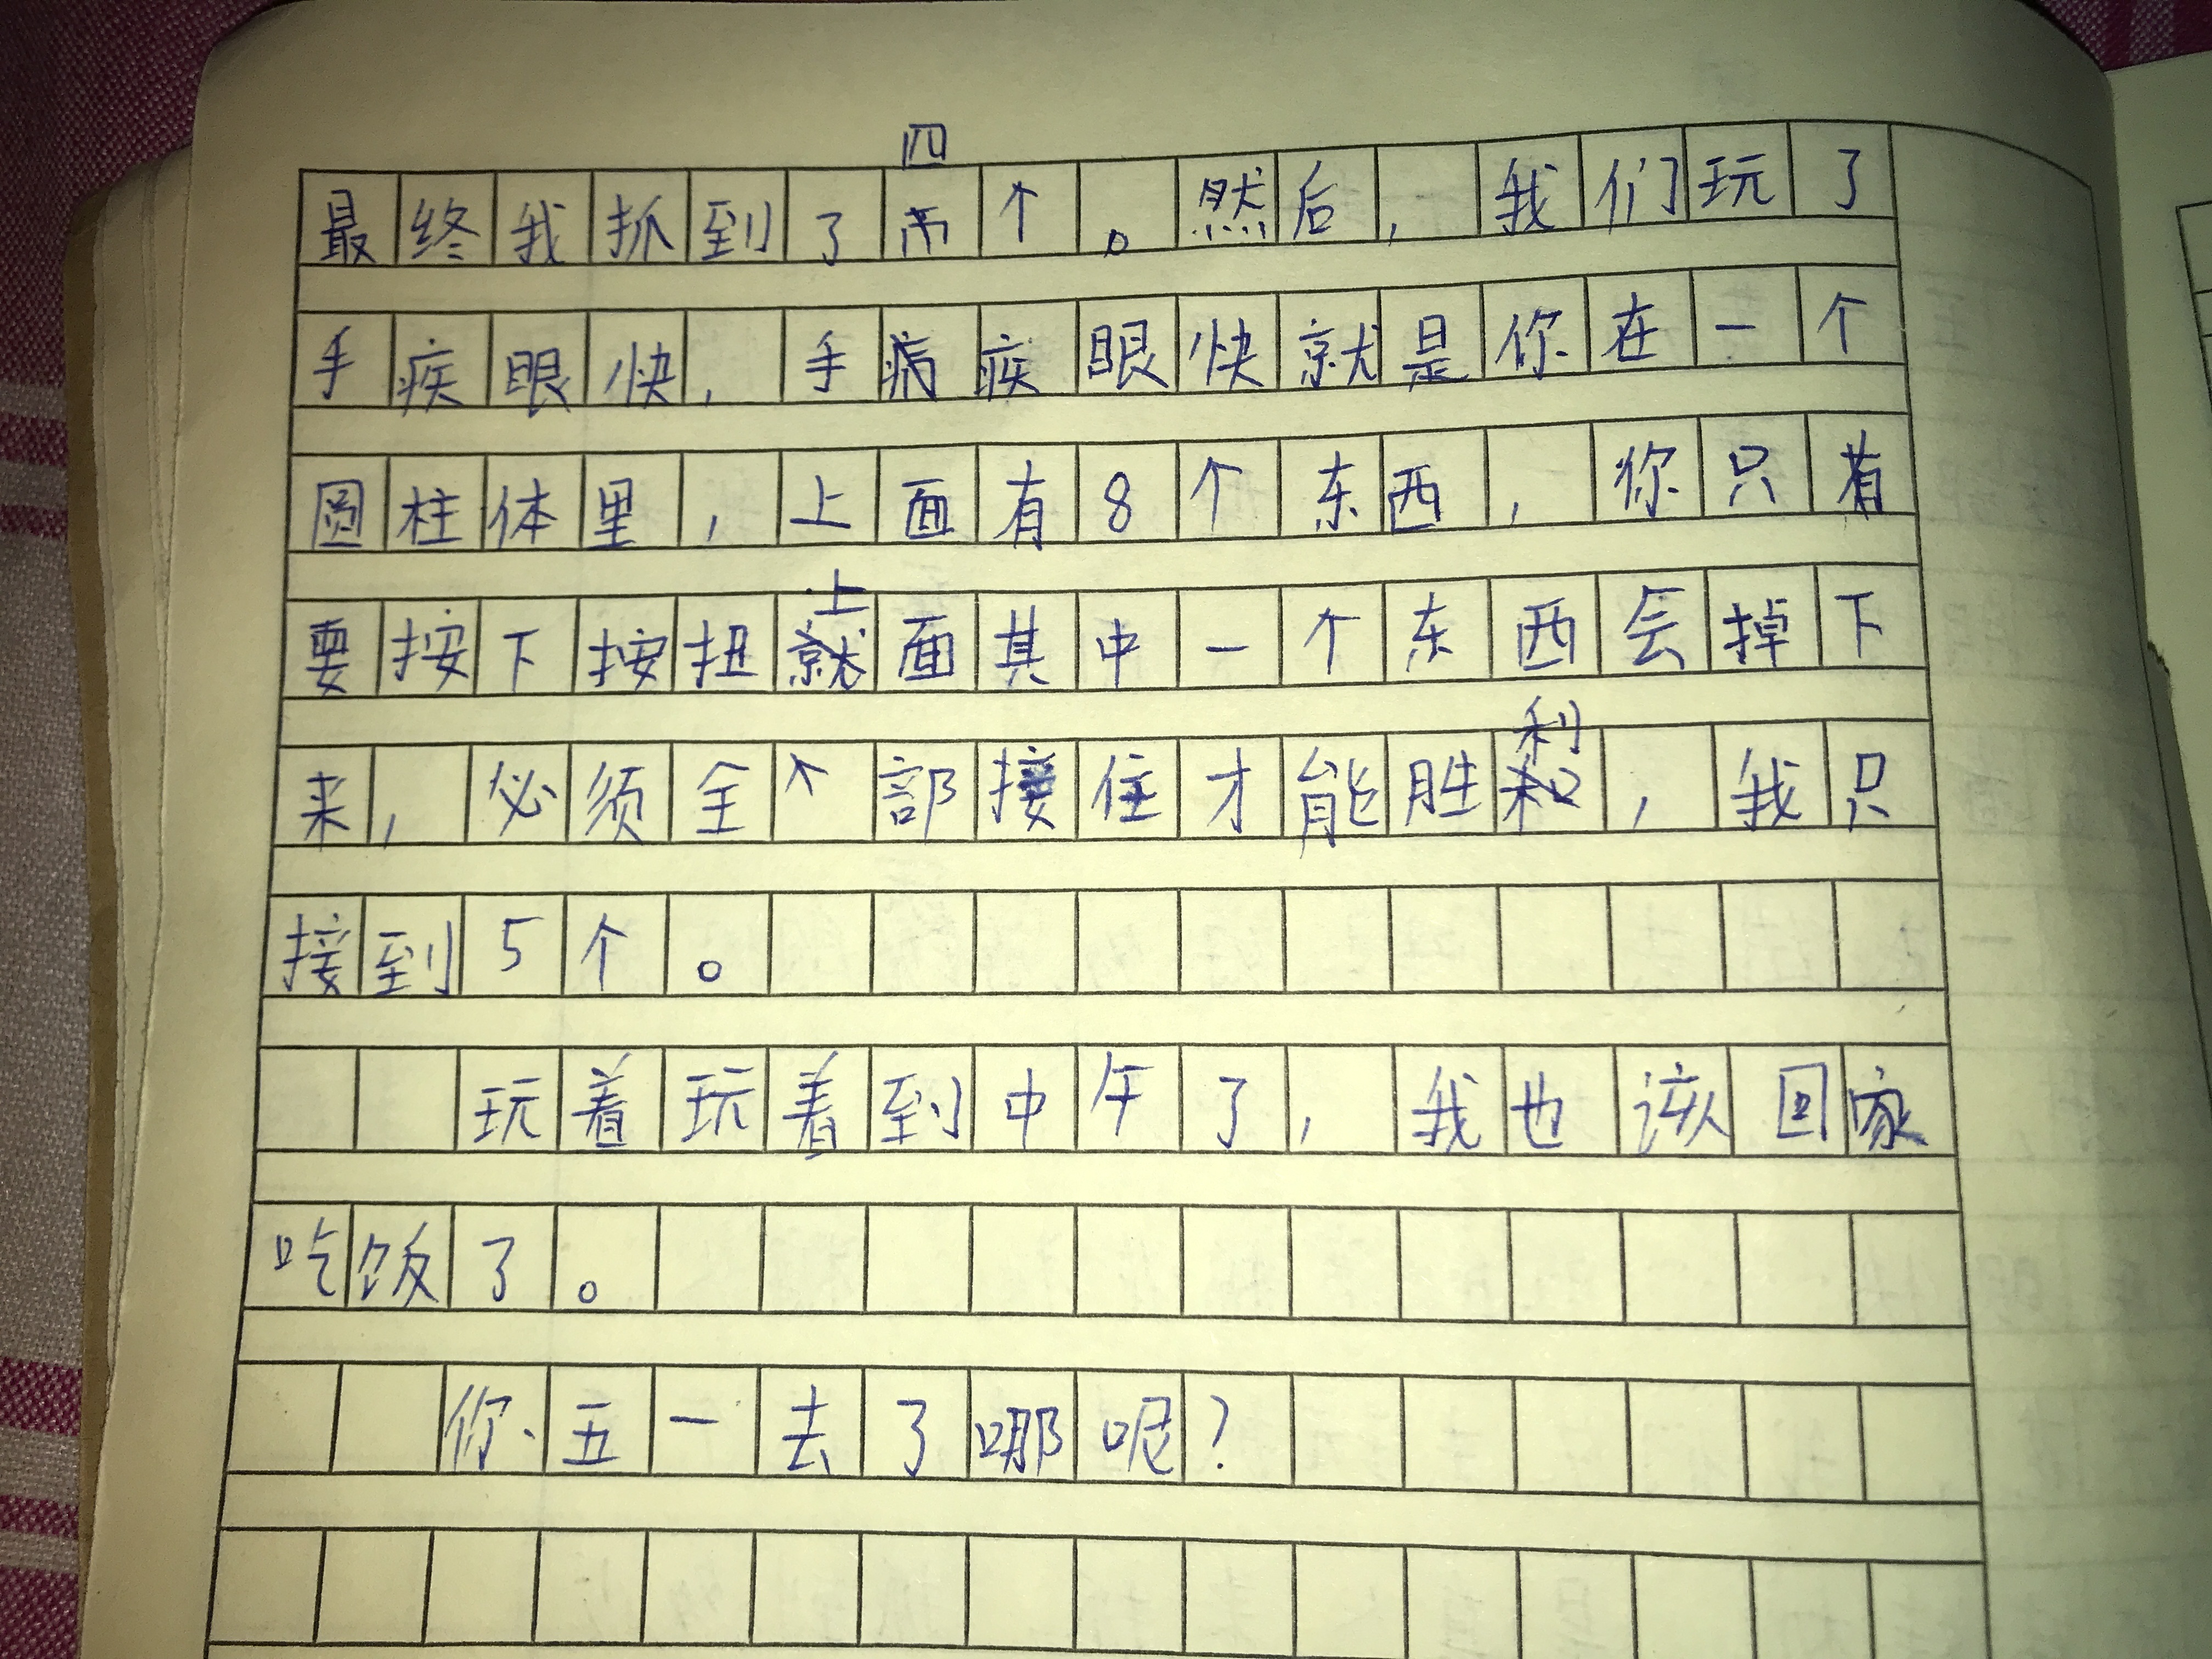 最终我抓到了四个。然后，我们玩了
手疾眼快，手疾眼快就是你在一个
圆柱体里，上面有8个东西，你只有
要按下按扭就上面其中一个东西会掉下
来，必须全部接住才能胜利，我只
接到5个。
玩着玩着到中午了，我也该回家
吃饭了。
你五一去了哪呢？